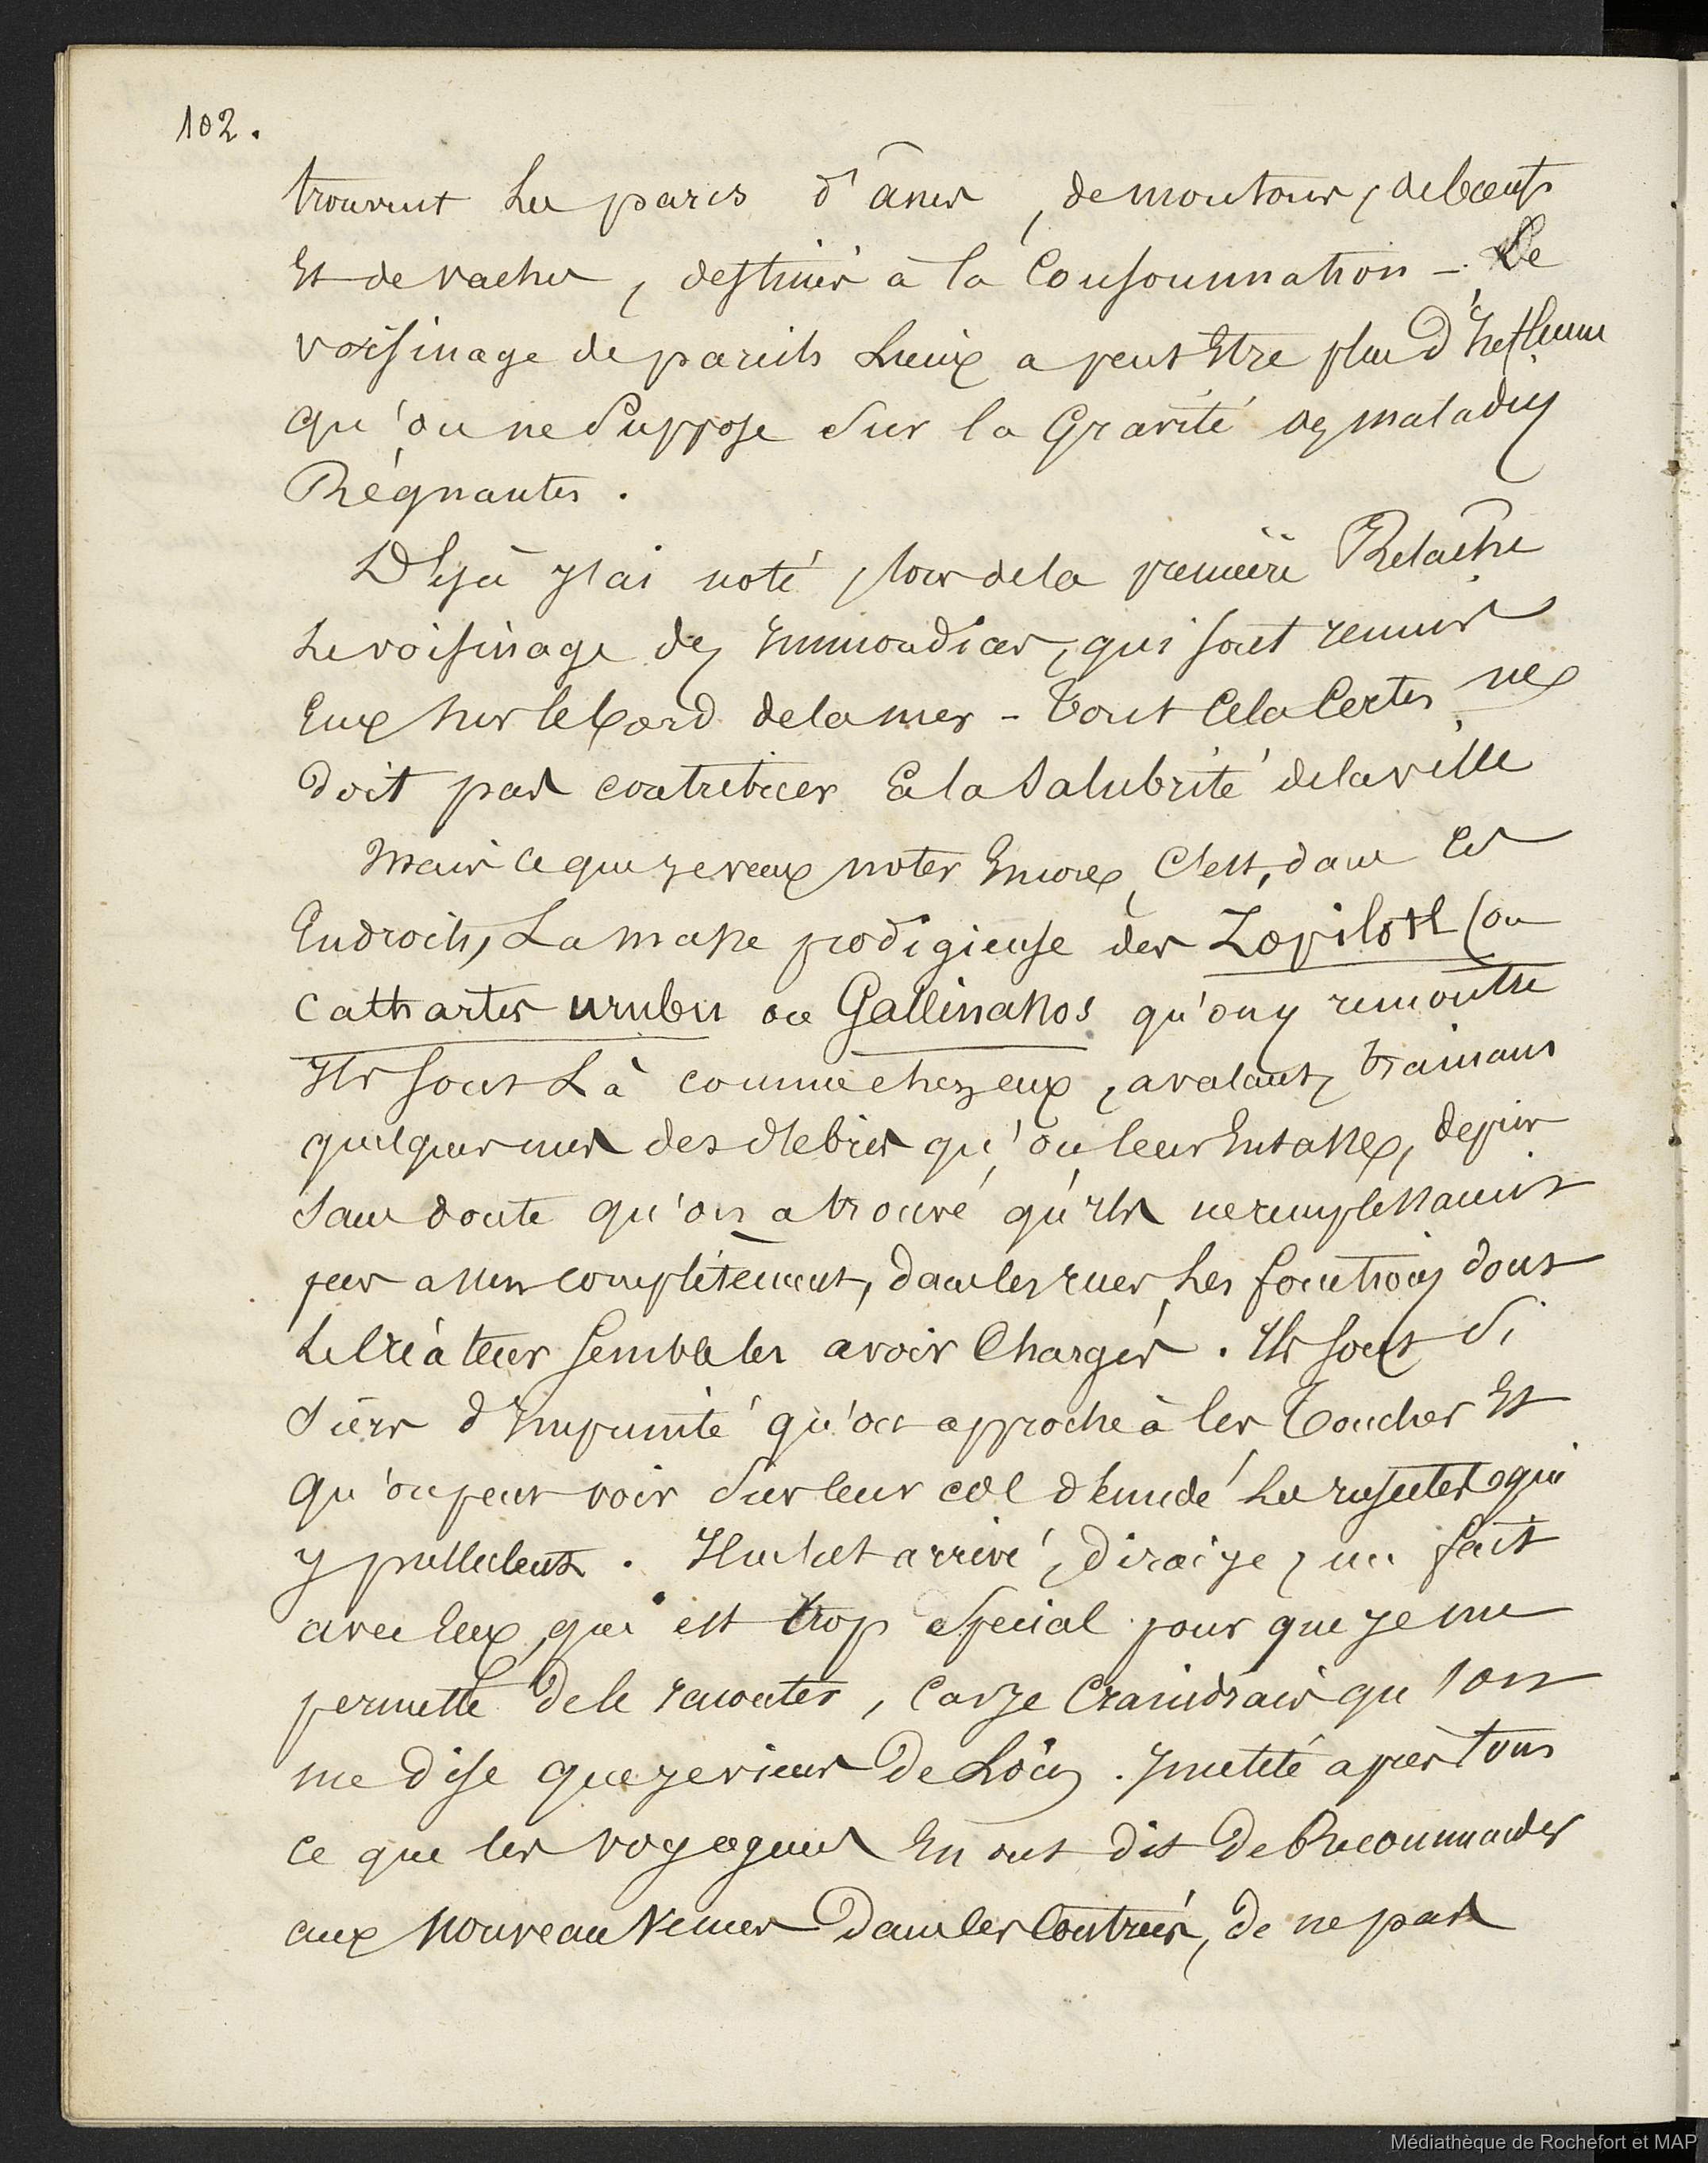 102.
trouvent les parcs d'ânes, de moutons, de bœufs
Et de vaches, destinés à la Consommation - Le
voisinage de pareils Lieux a peut Etre plus d'Influence
qu'on ne Suppose Sur la Gravité des maladies
Régnantes.
Déjà j'ai noté, lors de la première Relâche
Le voisinage des Immondices, qui sont
Eux sur le bord de la mer - Tout Cela Certes, ne
doit pas contribuer à la Salubrité de la ville
Mais ce que je veux noter Encore, C'est, dans ces
Endroits, La masse prodigieuse des Zopilotl (ou
Cathartes urubu ou Gallinassos qu'on y rencontre
Ils sont Là comme chez eux, avalant, trainant
quelques uns des débris qu'on leur Entasse, depuis
Sans doute qu'on a trouvé qu'ils ne remplissaient
pas assez complètement, dans les rues, Les fonctions dont
Le Créateur semble les avoir Chargés. Ils sont Si
Sûrs d'Impunité qu'on approche à les Toucher Et
qu'on peut voir Sur leur col dénudé Les insectes qui
y pullulent. Il m'est arrivé, dirai je, un fait
avec Eux, qui est trop Spécial pour que je me
permette de le raconter, Car je Craindrais que l'on
me dise que je viens de Loin. Il m'a été après tout
ce que les voyageurs En ont dit De Recommander
aux Nouveau Venus Dans les Contrées, de ne pas
Médiathèque de Rochefort et MAP